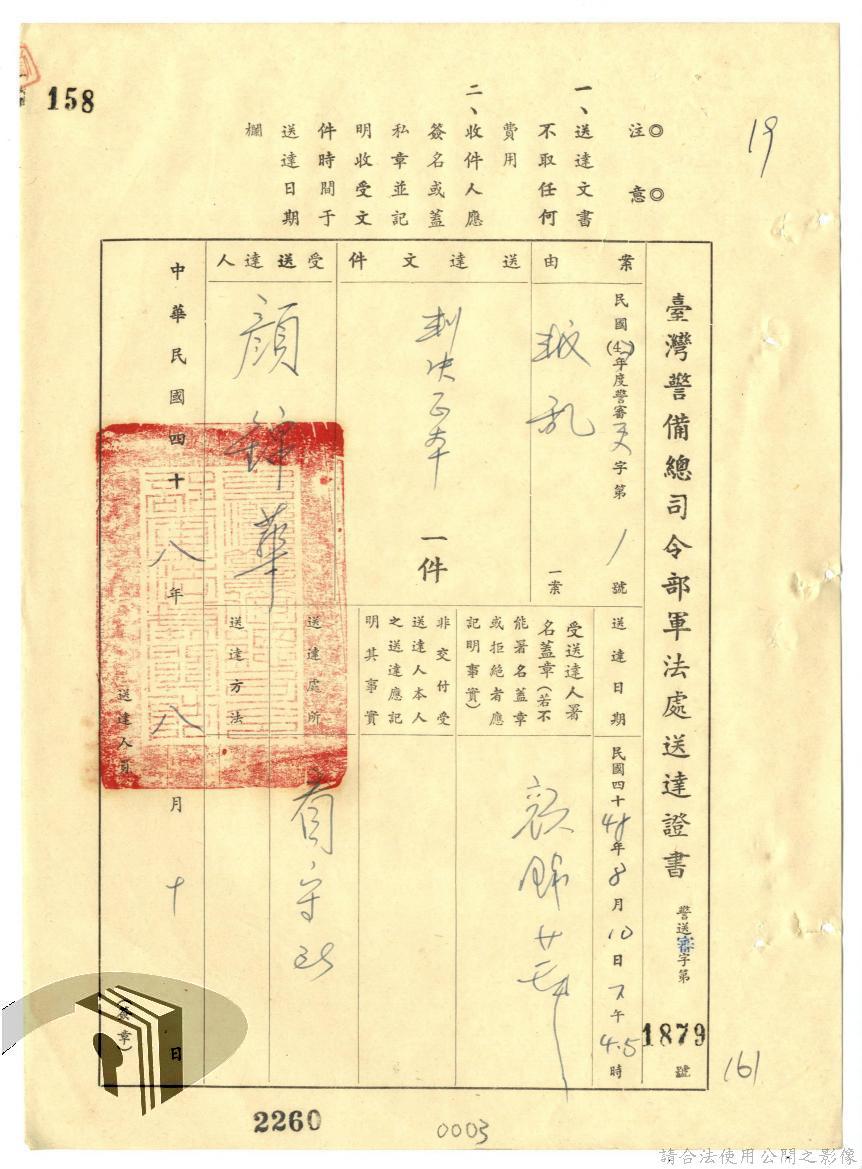 158
19
◎注意◎
一、送達文書
不取任何
費用
二、收件人應
簽名或蓋
私章並記
明收受文
件時間于
送達日期
欄
臺灣警備總司令部軍法處送達證書
警送審字第
1879
號
案由
民國(4)年度警審字第1號
叛乱
一案
送達文件
判决正本
一件
受送達人
顏錦華
送達日期
民國四十48年8月10日下午4.5時
受送達人署
名蓋章(若不
能署名蓋章
或拒絕者應
記明事實)
顏錦華
非交付受
送達人本人
之送達應記
明其事實
送達處所
看守所
送達方法
中華民國四十八年八月十日
送達人員
(簽章)
161
2260
0003
請合法使用公開之影像